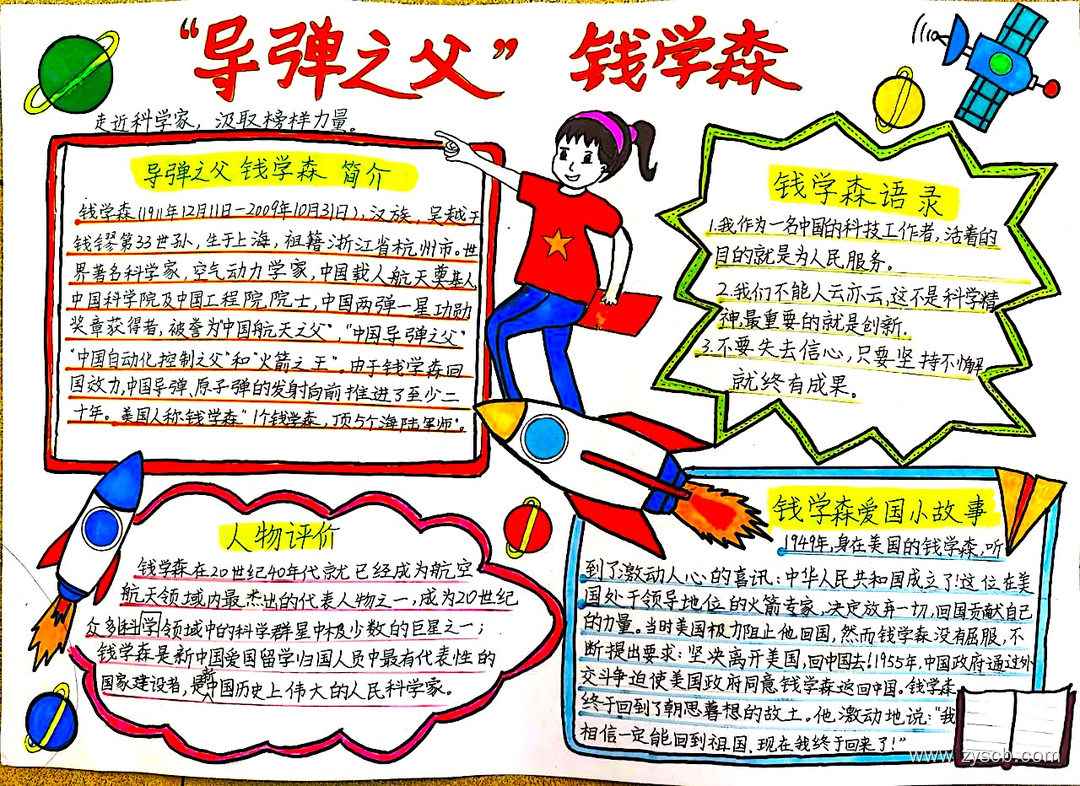 “导弹之父” 钱学森
走近科学家，汲取榜样力量。
导弹之父钱学森 简介
钱学森(1911年12月11日－2009年10月31日)，汉族，吴越王
钱镠第33世孙，生于上海，祖籍浙江省杭州市。世
界著名科学家，空气动力学家，中国载人航天奠基人，
中国科学院及中国工程院院士，中国两弹一星功勋
奖章获得者，被誉为“中国航天之父”，“中国导弹之父”
“中国自动化控制之父”和“火箭之王”。由于钱学森回
国效力，中国导弹、原子弹的发射向前推进了至少二
十年。美国人称钱学森“1个钱学森，顶5个海陆军师”。
钱学森语录
1.我作为一名中国的科技工作者，活着的
目的就是为人民服务。
2.我们不能人云亦云，这不是科学精
神，最重要的就是创新.
3.不要失去信心，只要坚持不懈
就终有成果。
人物评价
钱学森在20世纪40年代就已经成为航空
航天领域内最杰出的代表人物之一，成为20世纪
众多科学领域中的科学群星中极少数的巨星之一；
钱学森是新中国爱国留学归国人员中最有代表性的
国家建设者，是新中国历史上伟大的人民科学家。
钱学森爱国小故事
1949年，身在美国的钱学森，听
到了激动人心的喜讯：中华人民共和国成立了！这位在美
国处于领导地位的火箭专家，决定放弃一切，回国贡献自己
的力量。当时美国极力阻止他回国，然而钱学森没有屈服，不
断提出要求：坚决离开美国，回中国去！1955年，中国政府通过外
交斗争迫使美国政府同意钱学森返回中国。钱学森
终于回到了朝思暮想的故土。他激动地说：“我
相信一定能回到祖国，现在我终于回来了！”
www.zyscb.com